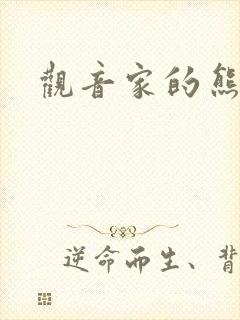 觀音家的熊
逆命而生、背